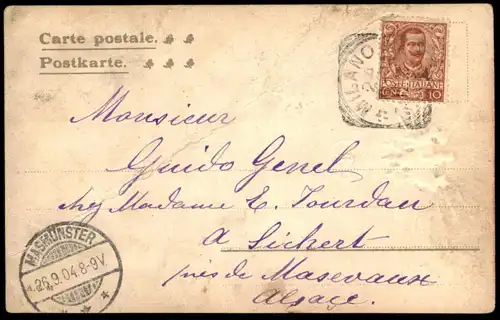 Carte postale.
Postkarte.
MILANO
POSTE ITALIANE
CEN. 10
Monsieur
Guido Genel
chez Madame E. Jourdau
a Sickert
près de Masevaux
Alsace.
MASMÜNSTER
26.9.04.8-9V